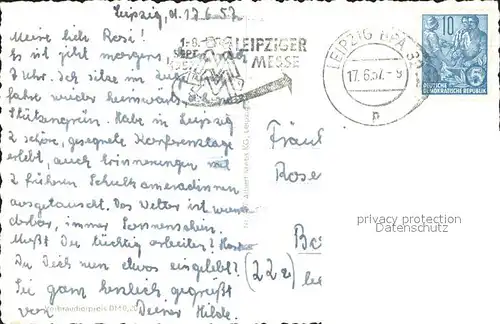 Leipzig, d. 17.6.57
Meine lieb Rosi!
Es ist jetzt morgens,
7 Uhr. Ich sitze im Zug
fahre wieder heimwärts,
Stützengrün. Habe in Leipzig
2 schöne, gesegnete Konferenztage
erlebt, auch Erinnerungen mit
2 früheren Schulkameradinnen
ausgetauscht. Das Wetter ist wunder-
bar, immer Sonnenschein.
Mußt Du tüchtig arbeiten? Hast
Du Dich nun etwas eingelebt?
Sei ganz herzlich gegrüßt
von Deiner Hilde.
LEIPZIGER
MESSE
LEIPZIG BPA 32
17.6.57.-9
p
10
5
DEUTSCHE
DEMOKRATISCHE REPUBLIK
Fräul
Rose
(22a)
privacy protection
for DSGVO
Verbraucherpreis DM 0,20